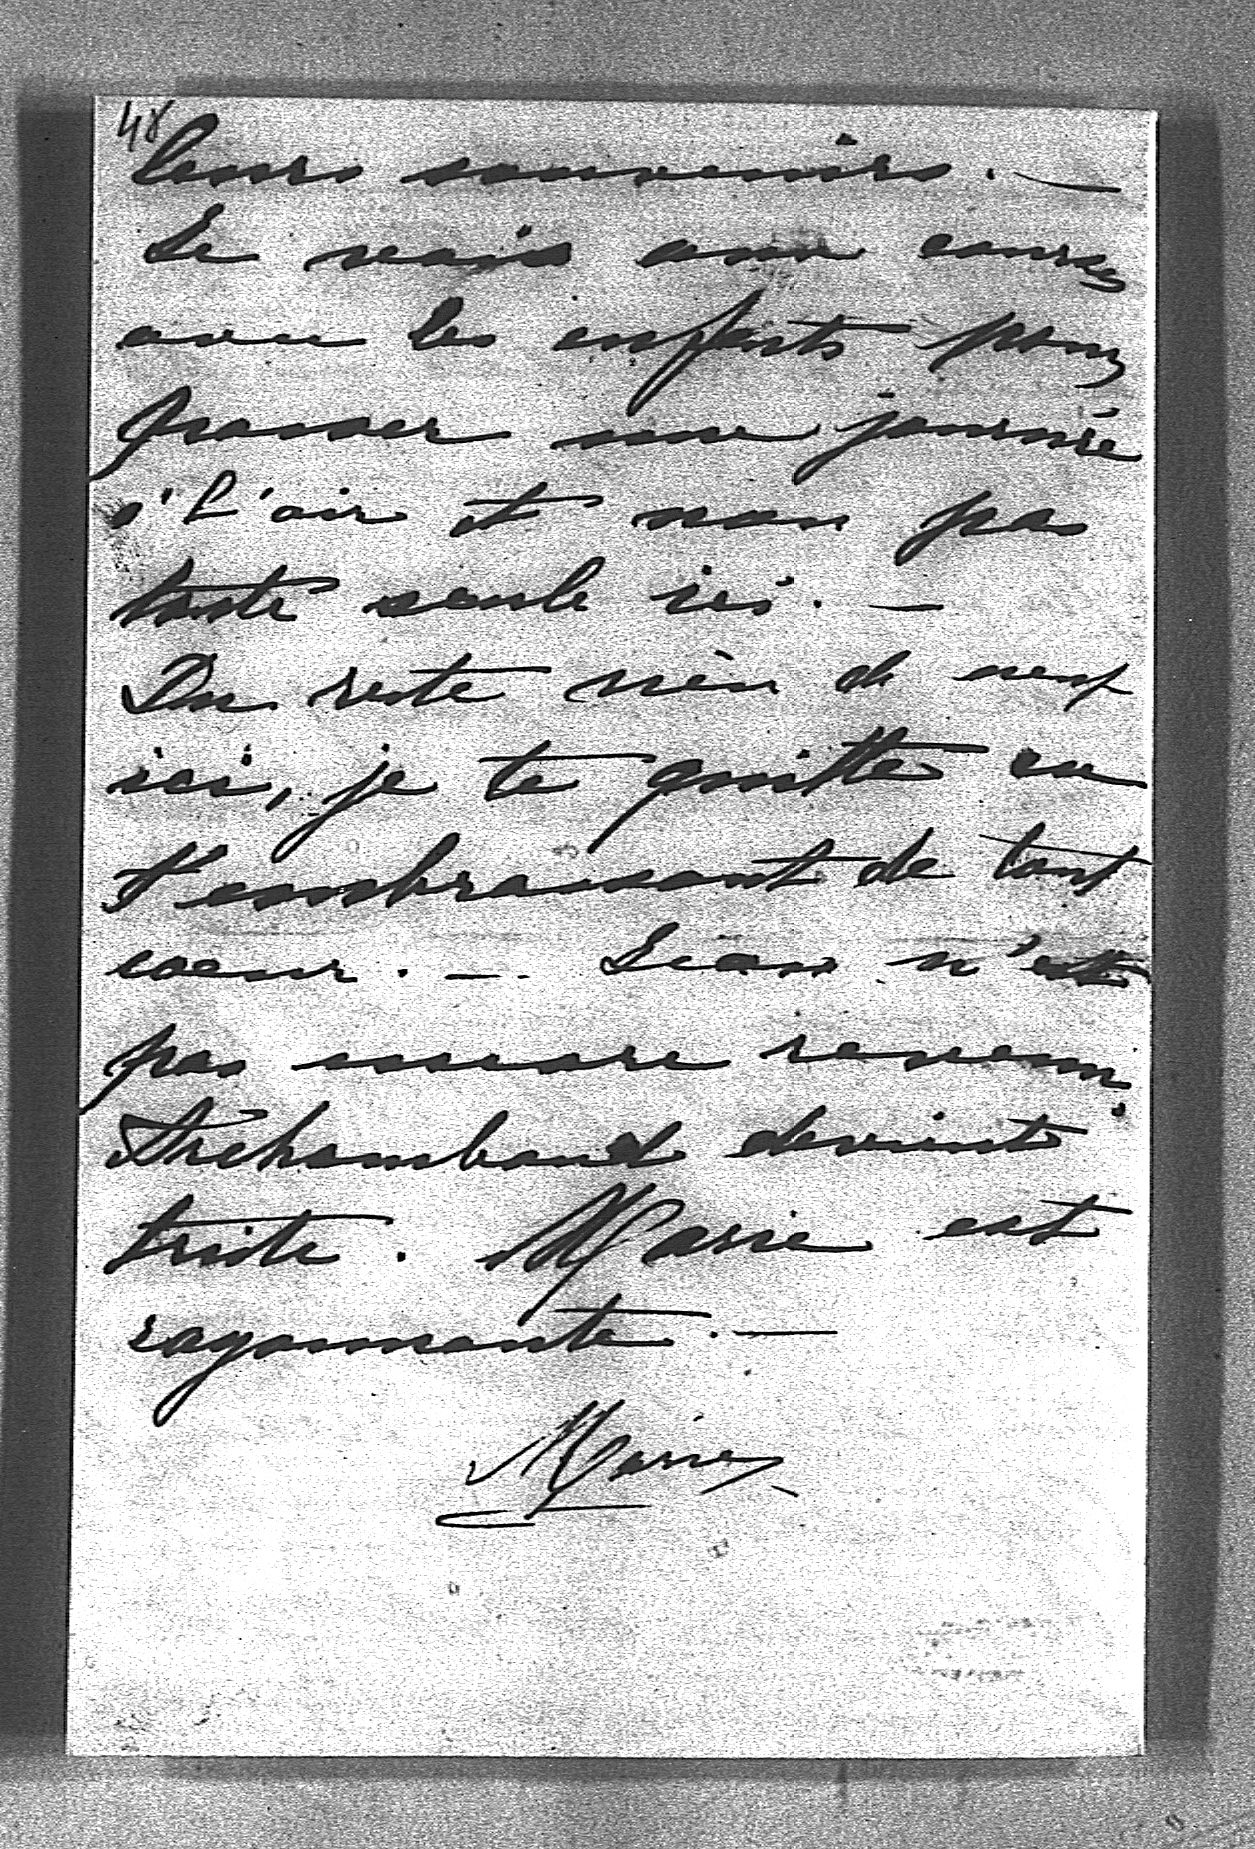 48
leurs souvenirs. —
Je vais aux courses
avec les enfants pour
passer une journée
à l'air et non pas
toute seule ici. —
Du reste rien de neuf
ici, je te quitte en
t'embrassant de tout
coeur. — Léon n'est
pas encore revenu.
Archambaud devient
triste. Marie est
rayonnante. —
Marie